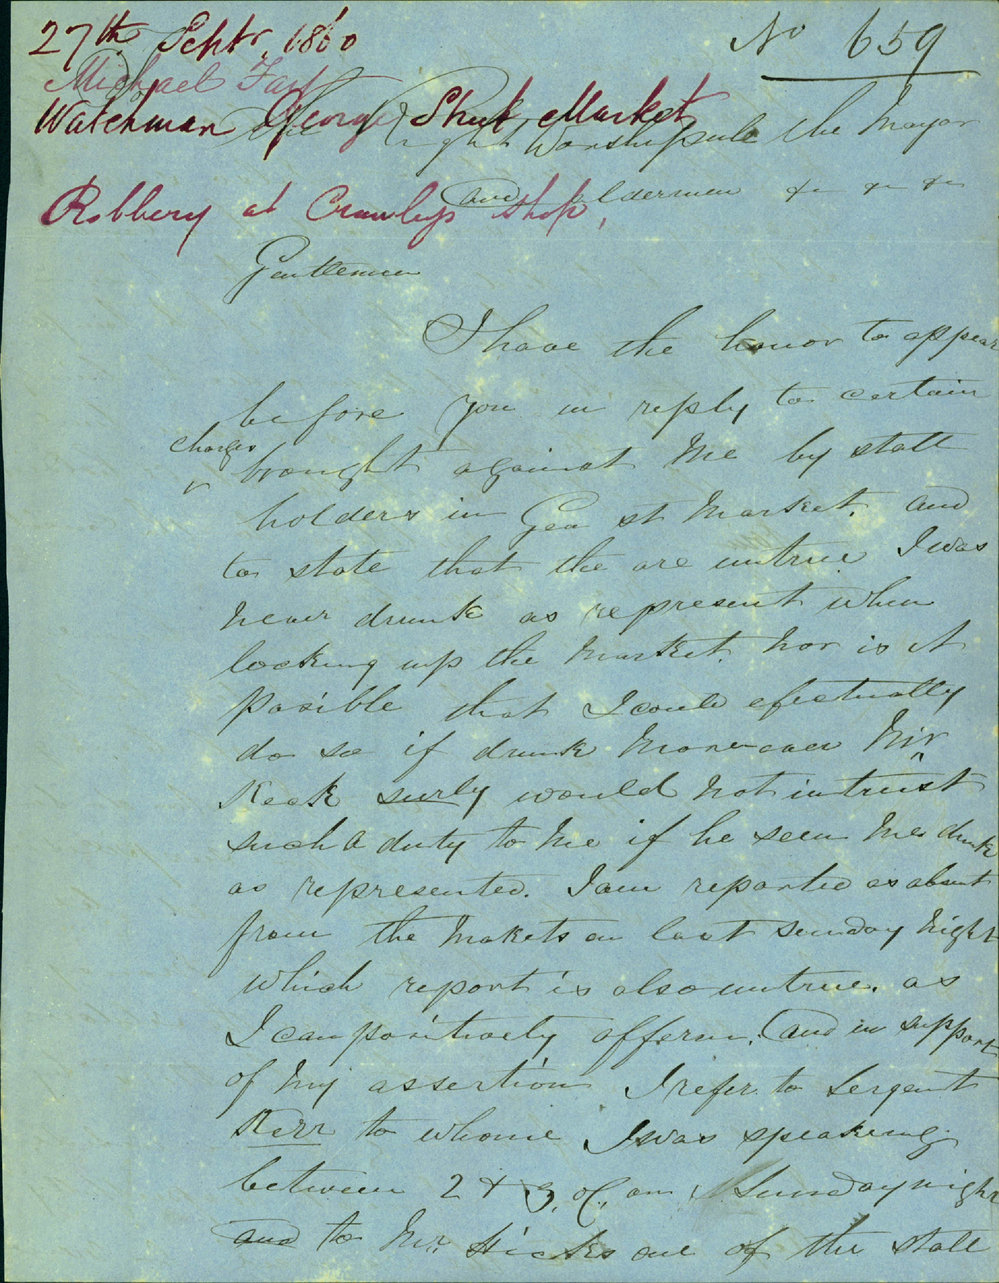 27th Septr. 1860
No 659
Michael
Watchman George Street Market
Right Worshipule the Mayor
and Aldermen &c &c &c
Robbery at Crawleys Shop,
Gentlemen
I have the honor to appear
before you in reply to certain
charges
brought against Me by stall
holders in Geo st Market. and
to state that the are untrue. I was
never drunk as represent when
locking up the Market. Nor is it
Posible that I could efectually
do so if drunk. More-over Mr.
Keck surly would Not intrust
such a duty to Me if he seen Me drunk
as represented. I am reported as absent
from the Makets on last Sunday Night
which report is also untrue. as
I can positively afferm. and in support
of My assertion I refer to Sergent
Kerr to whome I was speaking
between 2 & 3. oC. am Sunday night
and to Mr. Hicks one of the stall